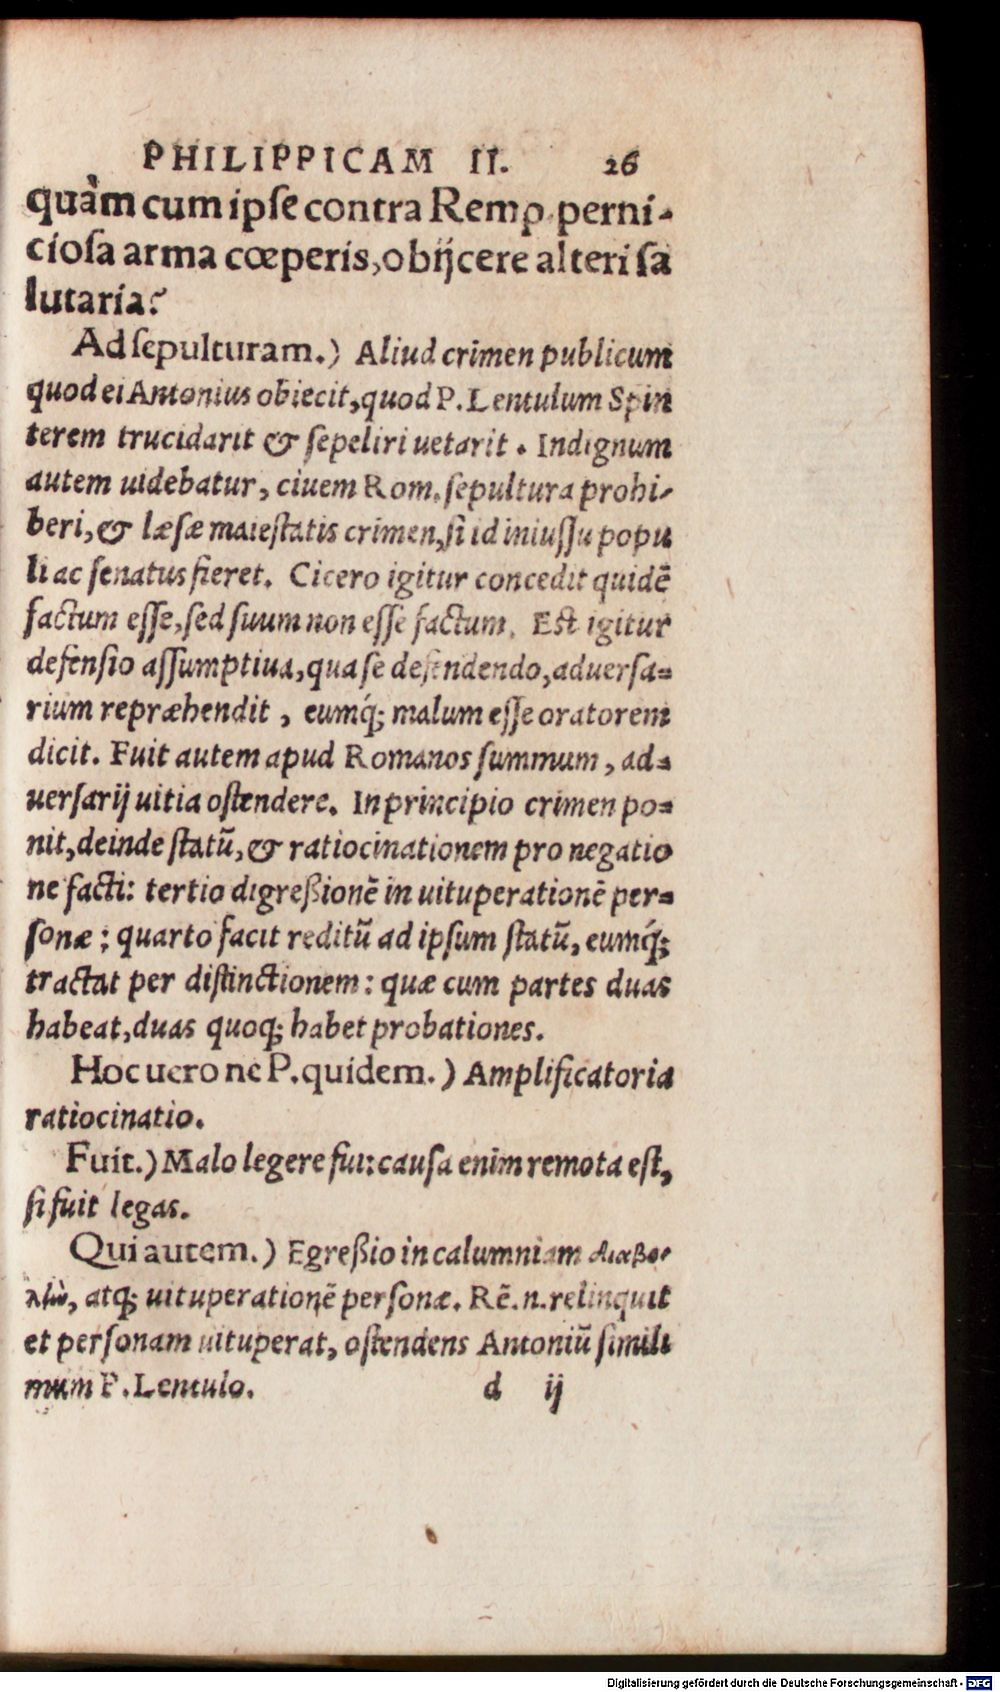 PHILIPPICAM II. 26
quàm cum ipſe contra Remp. perni-
cioſa arma cœperis, obijcere alteri ſa
lutaria?
Ad ſepulturam.) Aliud crimen publicum
quod ei Antonius obiecit, quod P. Lentulum Spin
terem trucidarit & ſepeliri uetarit. Indignum
autem uidebatur, ciuem Rom. ſepultura prohi-
beri, & læſæ maieſtatis crimen, ſi id iniuſſu popu
li ac ſenatus fieret. Cicero igitur concedit quidẽ
factum eſſe, ſed ſuum non eſſe factum. Est igitur
defenſio aſſumptiua, qua ſe defendendo, aduerſa-
rium repræhendit, eumq́; malum eſſe oratorem
dicit. Fuit autem apud Romanos ſummum, ad-
uerſarij uitia oſtendere. In principio crimen po-
nit, deinde ſtatũ, & ratiocinationem pro negatio
ne facti: tertio digreßionẽ in uituperationẽ per-
ſonæ; quarto facit reditũ ad ipſum ſtatũ, eumq́;
tractat per diſtinctionem: quæ cum partes duas
habeat, duas quoq; habet probationes.
Hoc uero ne P. quidem.) Amplificatoria
ratiocinatio.
Fuit.) Malo legere fui: cauſa enim remota eſt,
ſi fuit legas.
Qui autem.) Egreßio in calumniam διαβο-
λὼ, atq; uituperationẽ perſonæ. Rẽ. n. relinquit
et perſonam uituperat, oſtendens Antoniũ ſimili
mum P. Lentulo. d ij
Digitalisierung gefördert durch die Deutsche Forschungsgemeinschaft - DFG